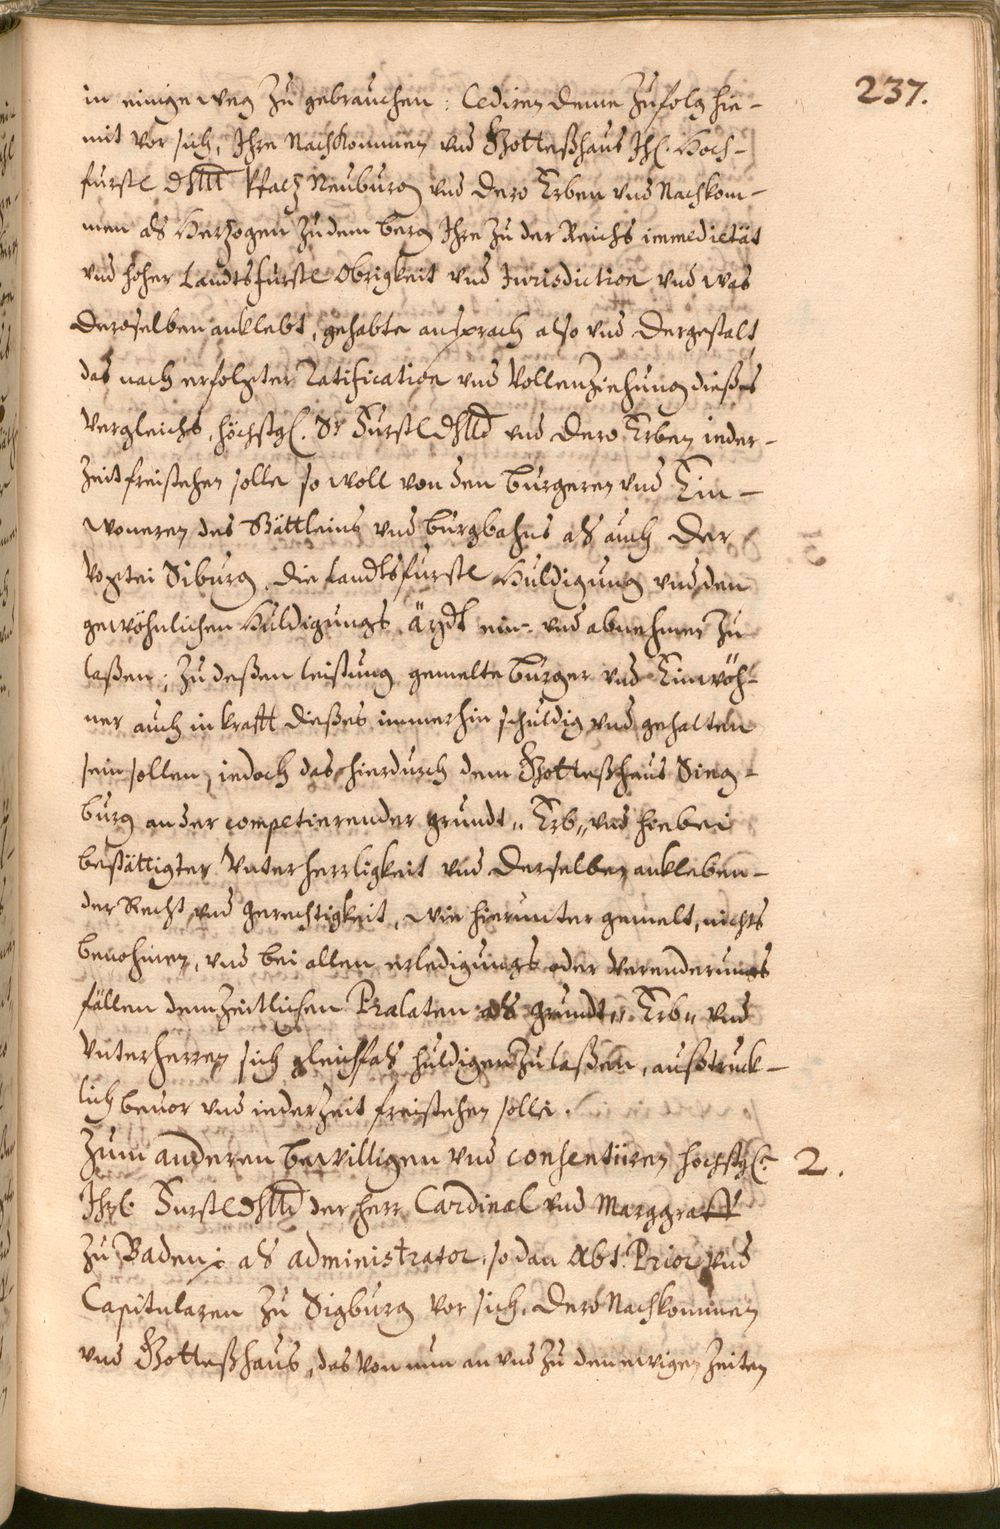 237.
in einige weg zu gebrauchen; Cediren deme zufolg hie-
mit vor sich, Ihre Nachkommen vnd Gotteßhaus Ihr. Hoch-
fürstl dhltt Pfaltz Neuburg vnd dero Erben vnd Nachkom-
men als Hertzogen zu dem berg Ihre zu der Reichs immedietät
vnd hoher Landtsfürstl Obrigkeit vnd Jurisdiction vnd was
deroselben anklebt, gehabte ansprach also vnd dergestalt
das nach erfolgter Ratification vnd Vollenziehung dießes
Vergleichs, höchstgl. Sr Fürstl dhltt vnd dero Erben ieder-
zeit freistehen solle so woll von den burgeren vnd Ein-
woneren des Stättleins vnd burgbahns als auch der
Vogtei Siburg die landtsfürstl Huldigung vnd den
gewöhnlichen Huldigungs äydt ein- vnd abnehmen zu
laßen; zu deßen leistung gemelte burger vnd Einwöh-
ner auch in krafft dießes immerhin schuldig vnd gehalten
sein sollen, iedoch das hierdurch dem Gotteßhaus Sieg-
burg an der competierender grundt" Erb" vnd hiebei
bestättigter Vnterherrligkeit vnd derselben ankleben-
der Recht vnd gerechtigkeit, wie hierunter gemelt, nichts
benohmen, vnd bei allen erledigungs oder verenderungs
fällen dem zeitlichen Prälaten als grundt" Erb" vnd
Vnterherren sich gleichfals huldigen zu laßen, außtruck-
lich beuor vnd iederzeit freistehen solle.
Zum anderen bewilligen vnd consentiiren höchstgl. 2.
Ihrl. Fürstl dhltt der herr Cardinal vnd Marggraff
zu Baden als administrator, so dan Abt. Prior vnd
Capitularen zu Sigburg vor sich, dero Nachkommen
vnd Gotteßhaus, das von nun an vnd zu den ewigen zeiten